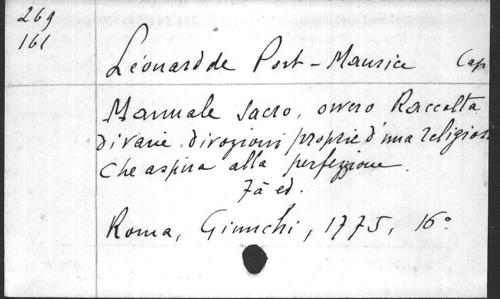 269
161
Léonard de Port-Maurice Cap
Manuale sacro, ovvero Raccolta
di varie divozioni proprie d'una religiosa
che aspira alla perfezzione.
7a ed.
Roma, Giunchi, 1775, 16°